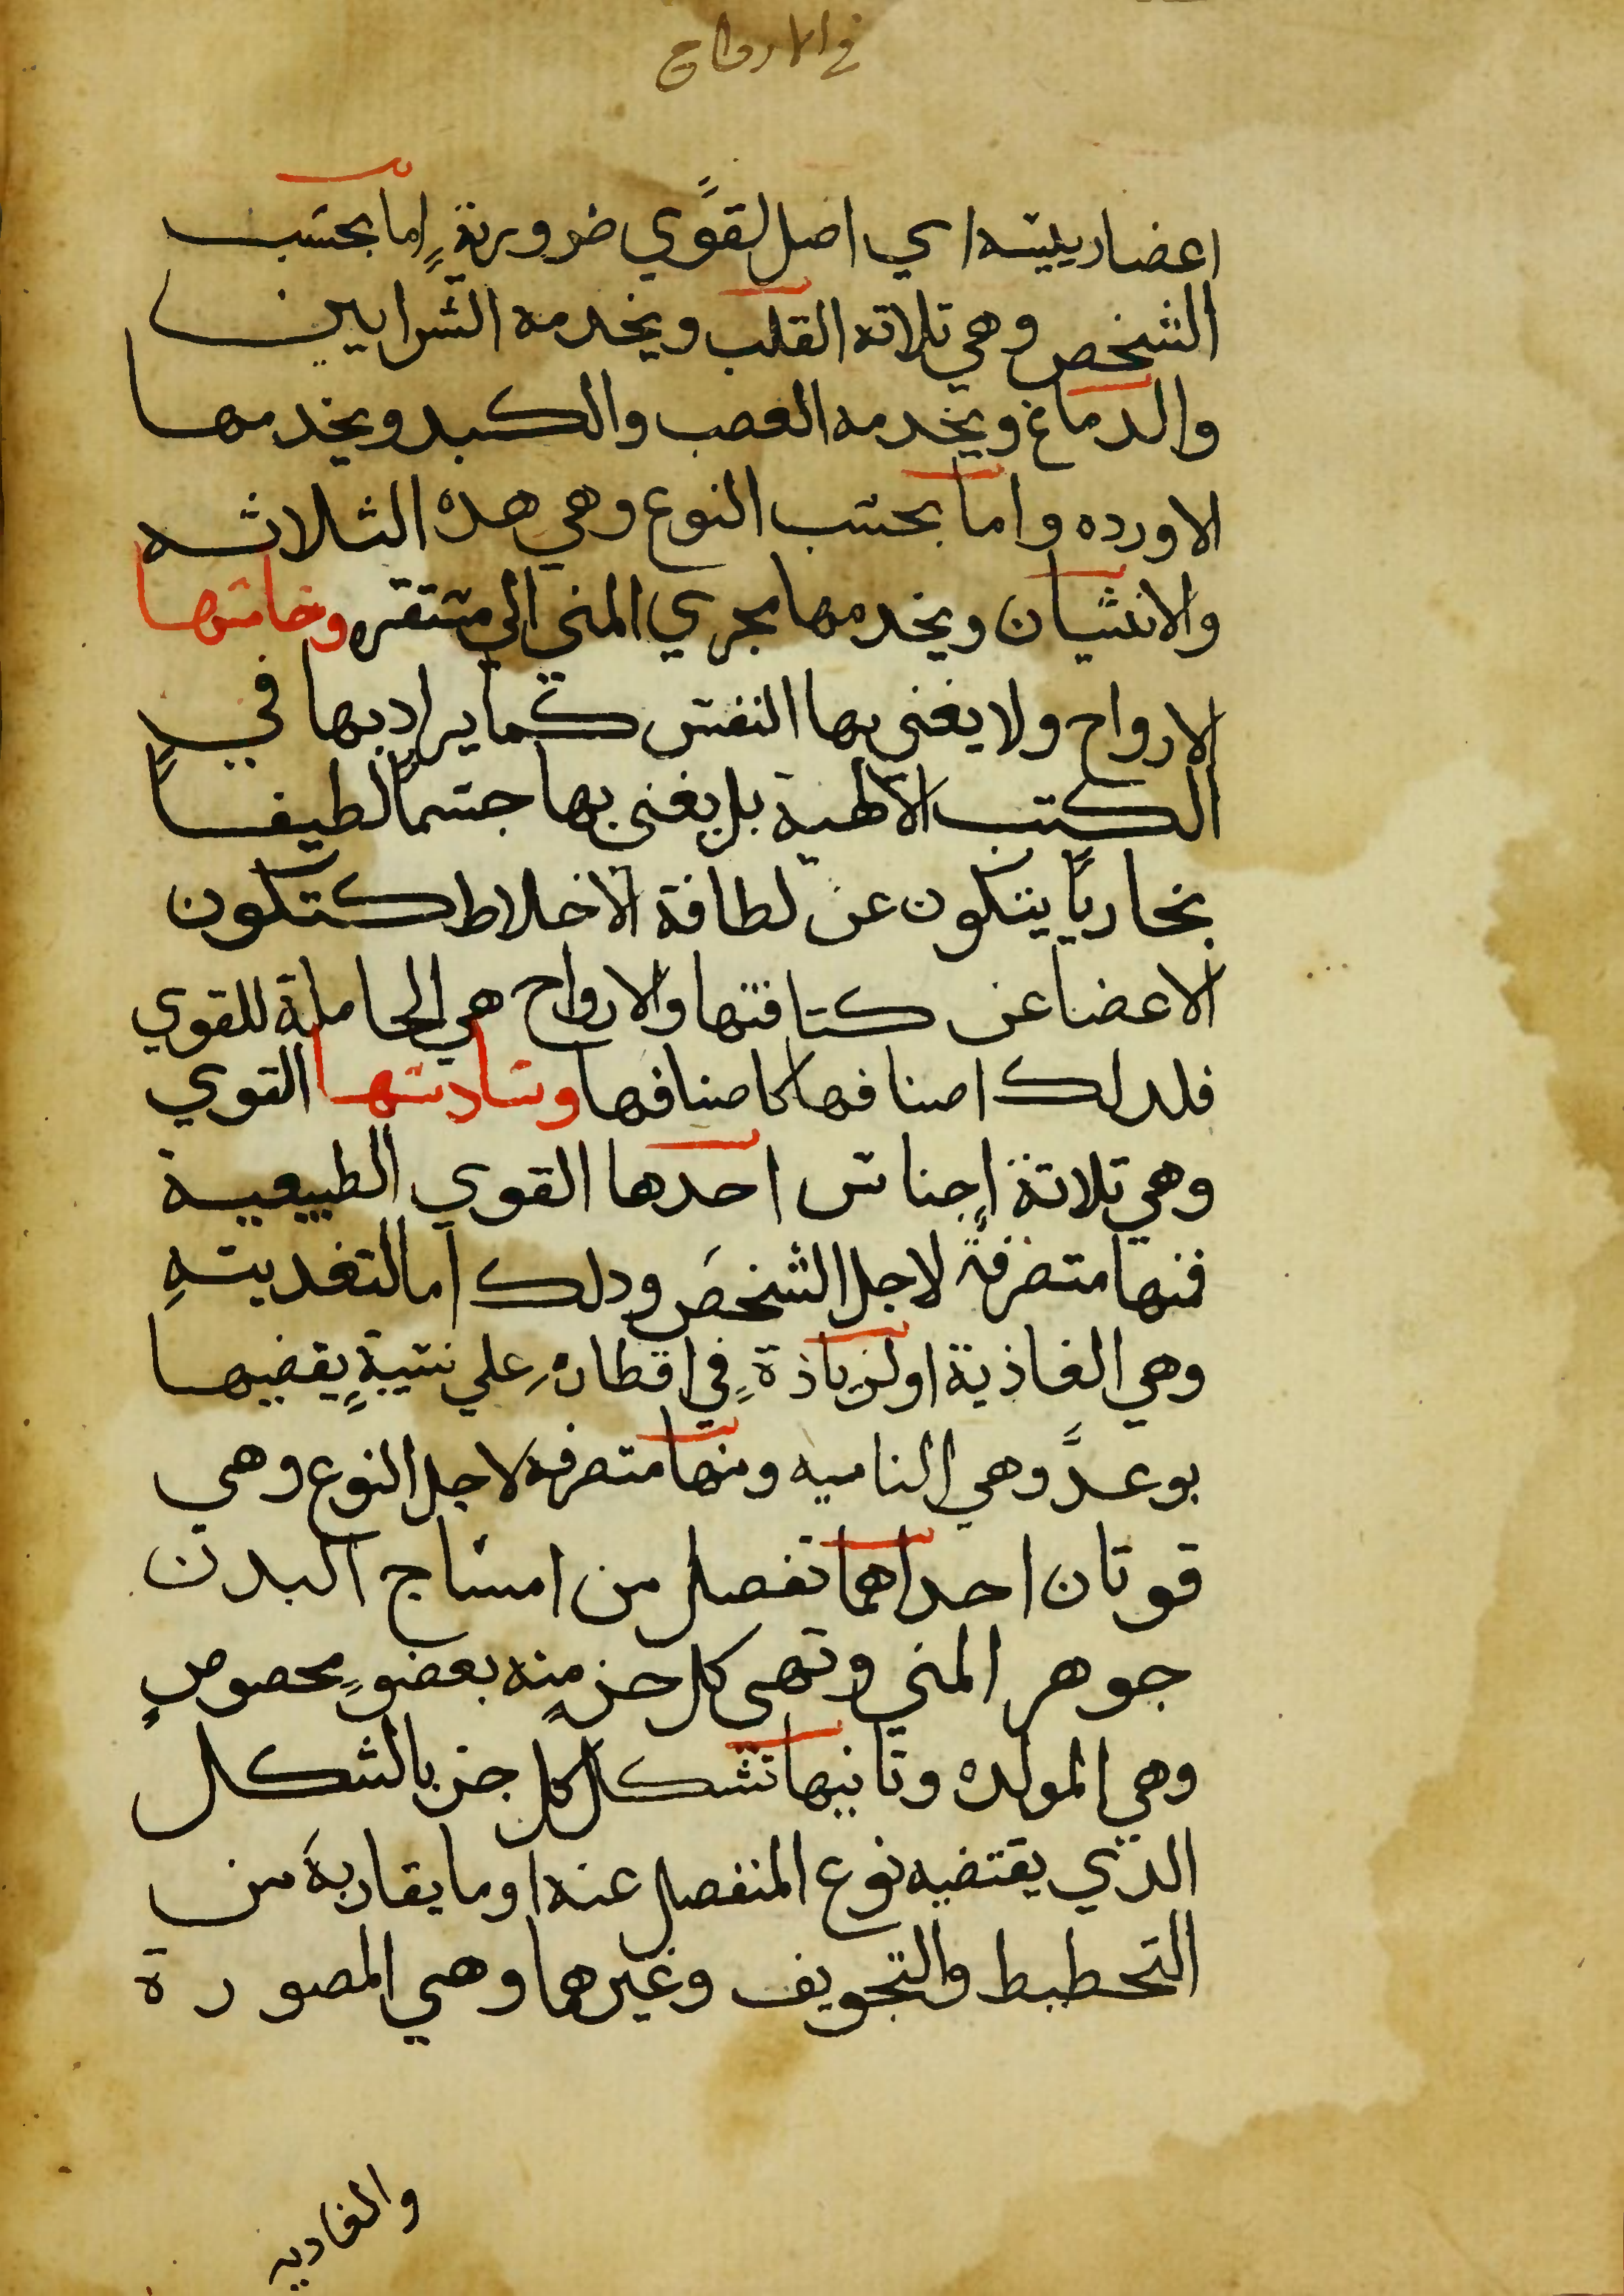 في الارواح
اعضا رييسه اي اصل لقوي ضرورية اما بحسب
الشخص وهي تلاته القلب ويخدمه الشرايين
والدماغ ويخدمه العصب والكبد ويخدمها
الاورده واما بحسب النوع وهي هده الثلاثه
والانثيان ويخدمها مجري المني الي مستقره وخامسها
الارواح ولا يغني بها النفس كما يراد بها في
الكتب الالهية بل يغني بها جسمًا لطيفًا
بخاريًا يتكون عن لطافة الاخلاط كتكون
الاعضا عن كتافتها والارواح هي الحاملة للقوي
فلدلك اصنافها كاصنافها وسادسها القوي
وهي تلاتة اجناس احدها القوي الطبيعية
فمنها متصرفة لاجل الشخص ودلك اما لتغديته
وهي الغاذية او لزياذة في اقطاره علي نسبة يقضيها
بوعد وهي الناميه ومنها متصرفه لاجل النوع وهي
قوتان احداهما تفصل من امشاج البدن
جوهر المني وتهى كل جز منه بعضو محصوص
وهي المولده وتانيها تشكل كل جز بالشكل
الذي يقتضيه نوع المنفصل عنه او ما يقاربه من
التحطيط والتجويف وغيرهما وهي المصورة
والغاديه